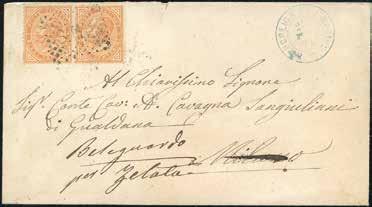 Al Chiarissimo Signore
Sigr. Conte Cav. A. Cavagna Sangiuliani
di Gualdana
Beleguardo
per Zelata a Milano